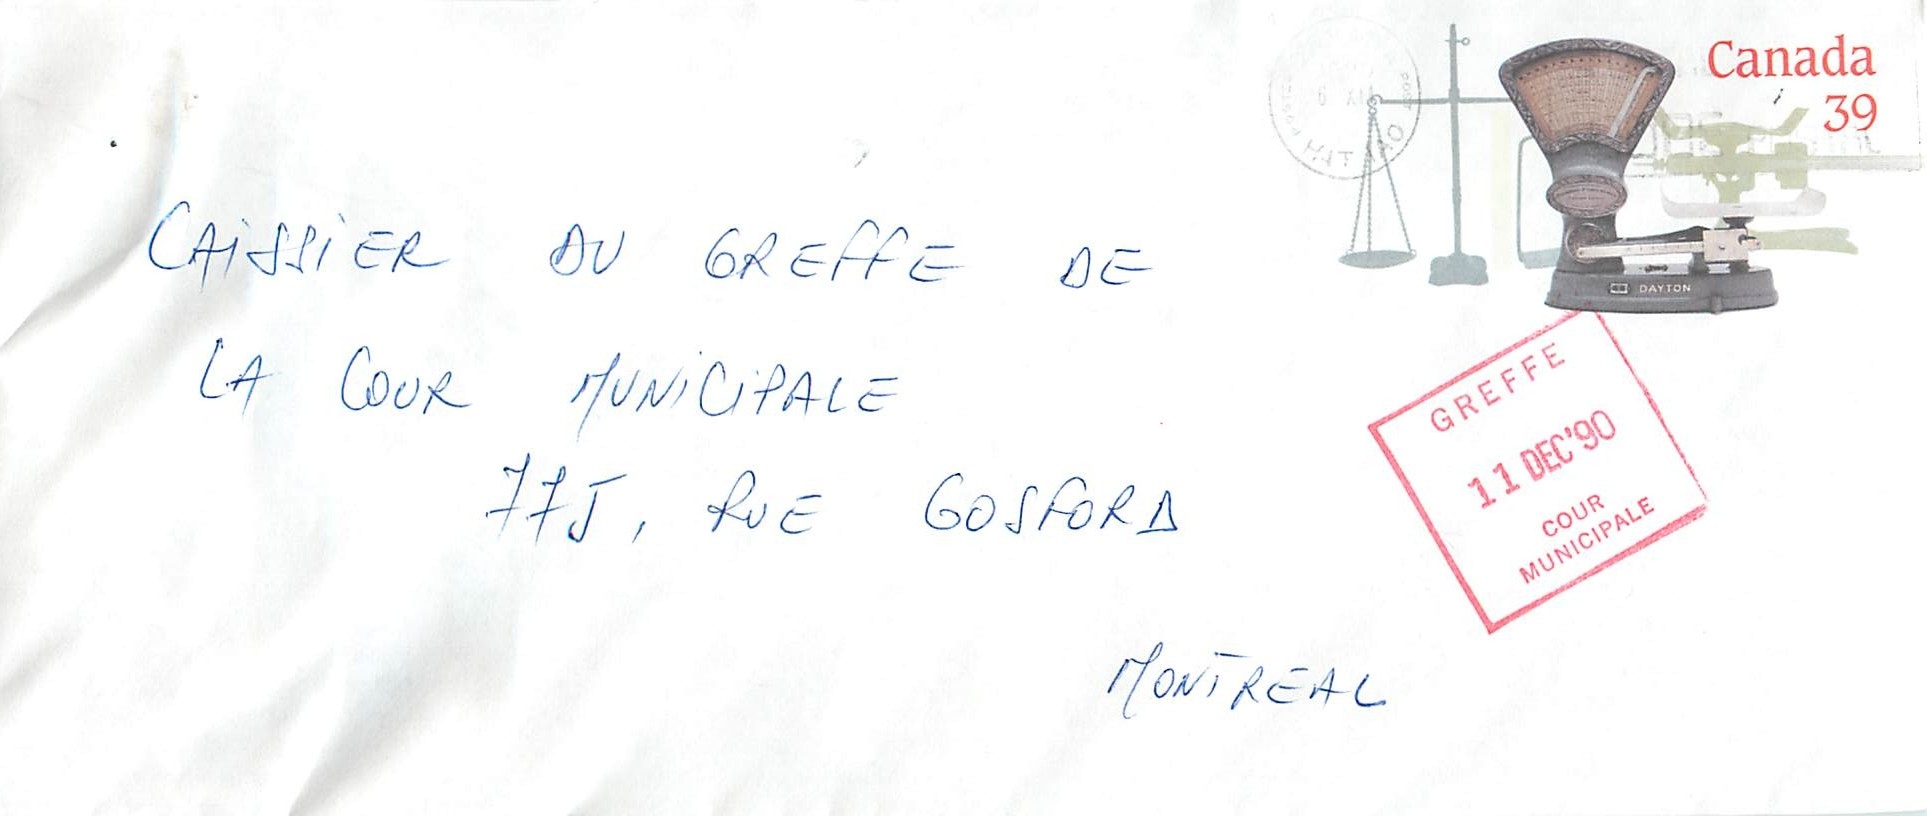 Canada
39
DAYTON
CAISSIER DU GREFFE DE
LA COUR MUNICIPALE
775, RUE GOSFORD
MONTREAL
GREFFE
11 DEC'90
COUR
MUNICIPALE